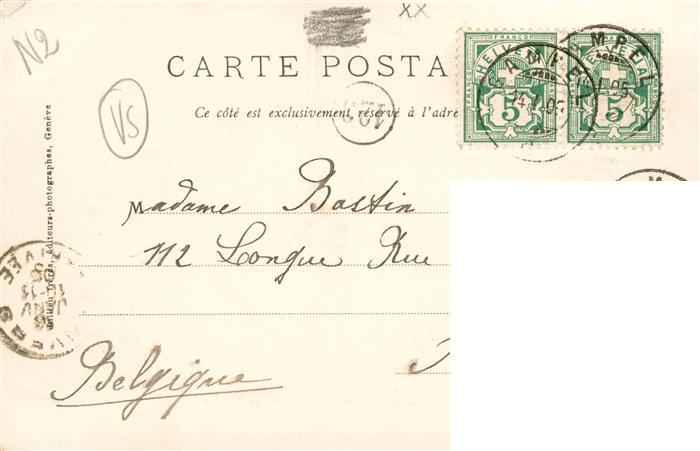 N2
XX
CARTE POSTA
Ce côté est exclusivement réservé à l'adre
VS
FRANCO FRANCO
HELVETIA HELVETIA
5 5
Madame Bastin
112 Longue Rue
Belgique
Jullien frères, éditeurs-photographes, Genève